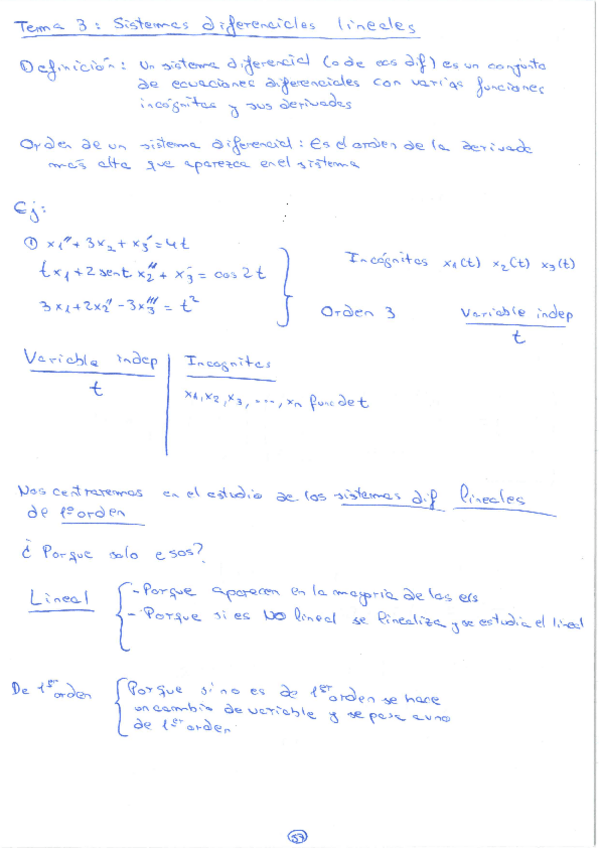 Tema 3: Sistemas diferenciales lineales
Definición: Un sistema diferencial (o de ecs dif) es un conjunto
de ecuaciones diferenciales con varias funciones
incógnitas y sus derivadas
Orden de un sistema diferencial: Es el orden de la derivada
más alta que aparezca en el sistema
Ej:
① x₁'' + 3x₂ + x₃' = 4t
tx₁ + 2 sent x₂'' + x₃' = cos 2t
3x₁ + 2x₂'' - 3x₃''' = t²
Incógnitas x₁(t) x₂(t) x₃(t)
Orden 3
Variable indep
t
Variable indep
t
Incognitas
x₁, x₂, x₃, ..., xₙ func de t
Nos centraremos en el estudio de los sistemas dif lineales
de 1º orden
¿Porque solo esos?
Lineal
- Porque aparecen en la mayoria de las ecs
- Porque si es NO lineal se linealiza y se estudia el lineal
De 1er orden
Porque si no es de 1er orden se hace
un cambio de variable y se pasa a uno
de 1er orden
37